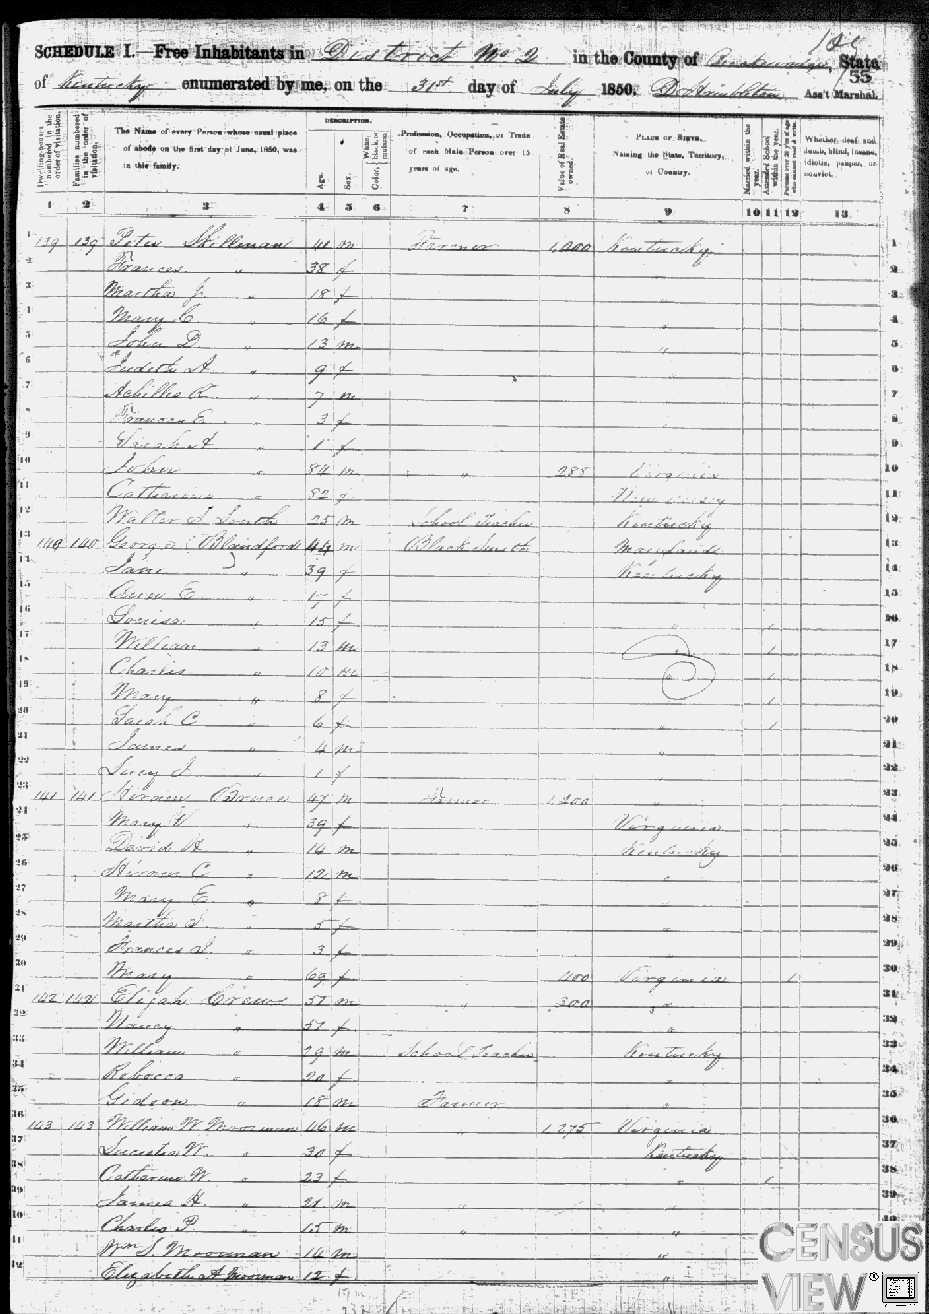 SCHEDULE I.—Free Inhabitants in District No 2 in the County of State
of Kentucky enumerated by me, on the 31st day of July 1850. Ass't Marshal.
55
Dwelling-houses numbered in the order of visitation.
Families numbered in the order of visitation.
The Name of every Person whose usual place of abode on the first day of June, 1850, was in this family.
DESCRIPTION.
Age.
Sex.
Color, White, black, or mulatto.
Profession, Occupation, or Trade of each Male Person over 15 years of age.
Value of Real Estate owned.
PLACE OF BIRTH. Naming the State, Territory, or Country.
Married within the year.
Attended School within the year.
Persons over 20 y'rs of age who cannot read & write.
Whether deaf and dumb, blind, insane, idiotic, pauper, or convict.
1 2 3 4 5 6 7 8 9 10 11 12 13
1 139 139 Peter Skillman 41 m Farmer 1,000 Kentucky 1
2 Frances " 38 f 2
3 Martha J. " 18 f " 3
4 Mary C. " 16 f " 4
5 John D. " 13 m " 5
6 Judeth A. " 9 f 6
7 Achilles R. " 7 m 7
8 Frances E. " 3 f 8
9 A " 1 f 9
10 John " 84 m " 288 Virginia 10
11 Catharine " 82 f New Jersey 11
12 Walter S. South 25 m School Teacher Kentucky 12
13 140 140 George Blandford 44 m Black Smith Maryland 13
14 Jane " 39 f Kentucky 14
15 Ann E. " 17 f 15
16 Louisa " 15 f " 1 16
17 William " 13 m " 1 17
18 Charles " 10 m " 1 18
19 Mary " 8 f 1 19
20 Sarah C " 6 f " 1 20
21 James " 4 m " 21
22 Lucy J. " 1 f 22
23 141 141 Hiram 47 m Farmer 1,200 " 23
24 Mary V. " 39 f Virginia 24
25 David H. " 14 m Kentucky 25
26 Hiram C. " 12 m " 26
27 Mary E. " 8 f 27
28 Martha S. " 5 f " 28
29 Frances S. " 3 f " 29
30 Mary " 69 f 400 Virginia 1 30
31 142 142 Elijah Crews 51 m " 300 " 31
32 Nancy " 51 f " 32
33 William " 29 m School Teacher Kentucky 33
34 Rebecca " 20 f " 34
35 Gideon " 18 m Farmer " 35
36 143 143 William W. Moorman 46 m 1,275 Virginia 36
37 W. " 30 f Kentucky 37
38 Catharine W. " 23 f " 1 38
39 James H. " 21 m " " 39
40 Charles P. " 15 m " "
41 Wm S. Moorman 14 m "
42 Elizabeth A Moorman 12 f "
CENSUS
VIEW®